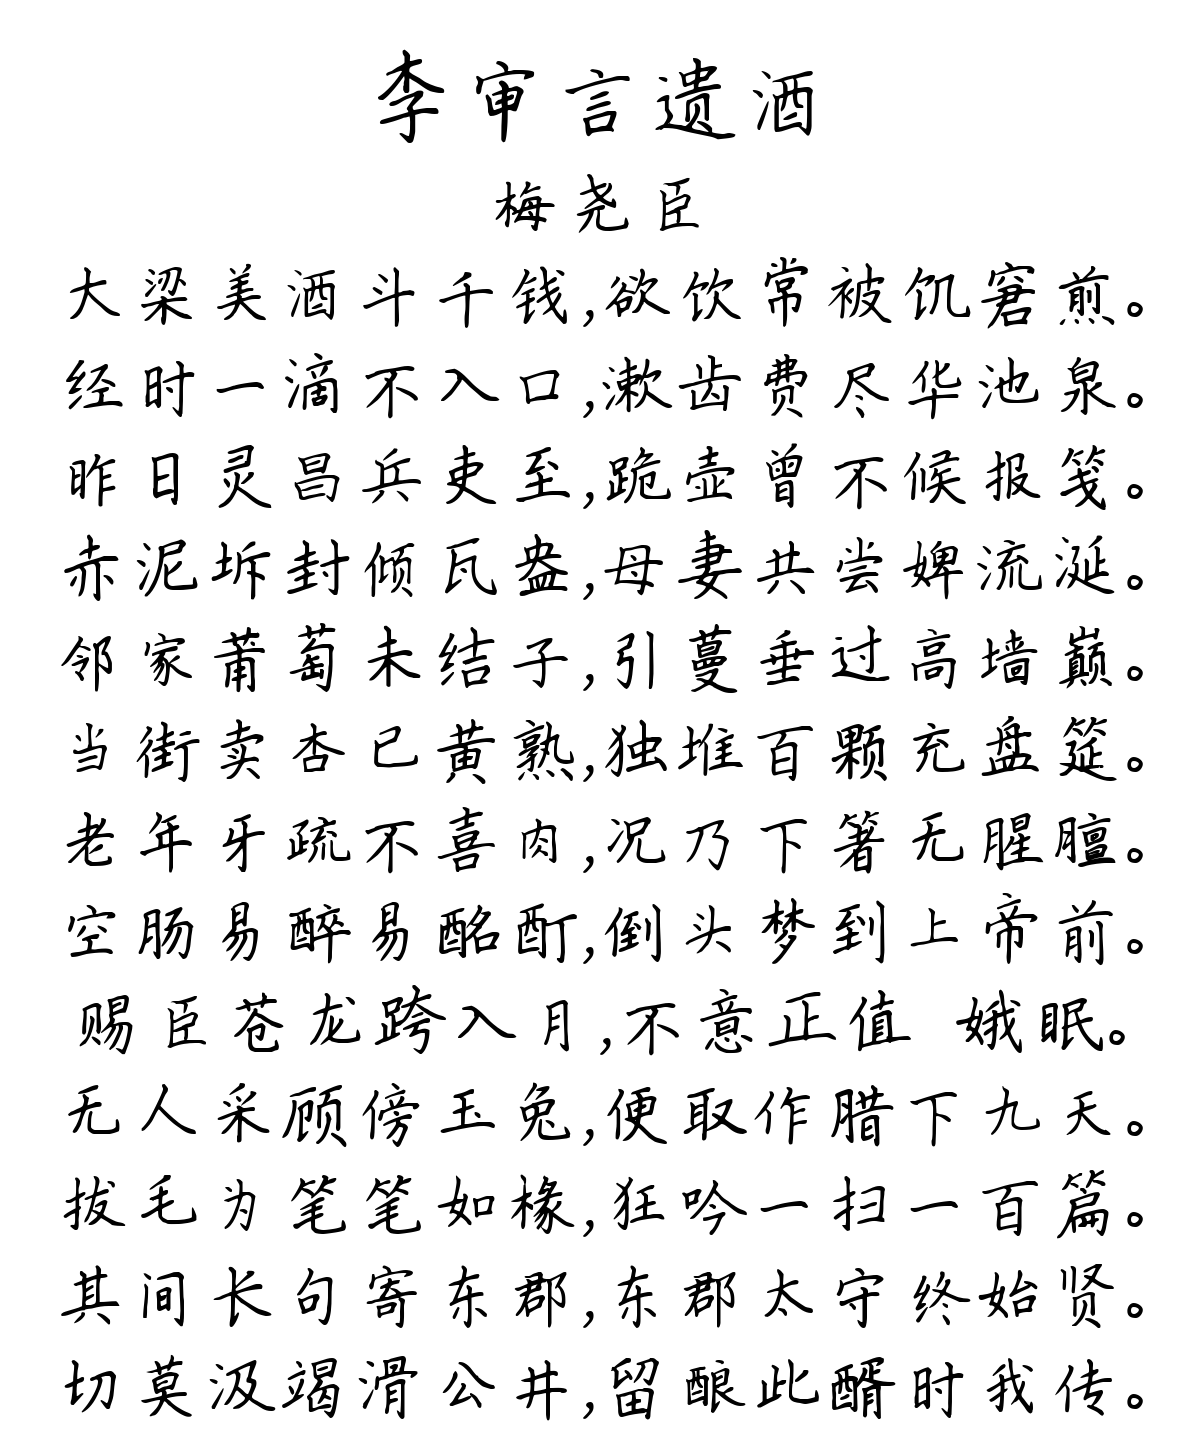 李审言遗酒
梅尧臣
大梁美酒斗千钱,欲饮常被饥窘煎。
经时一滴不入口,漱齿费尽华池泉。
昨日灵昌兵吏至,跪壶曾不候报笺。
赤泥坼封倾瓦盎,母妻共尝婢流涎。
邻家葡萄未结子,引蔓垂过高墙巅。
当街卖杏已黄熟,独堆百颗充盘筵。
老年牙疏不喜肉,况乃下箸无腥膻。
空肠易醉易酩酊,倒头梦到上帝前。
赐臣苍龙跨入月,不意正值 娥眠。
无人采顾傍玉兔,便取作腊下九天。
拔毛为笔笔如椽,狂吟一扫一百篇。
其间长句寄东郡,东郡太守终始贤。
切莫汲竭滑公井,留酿此醑时我传。